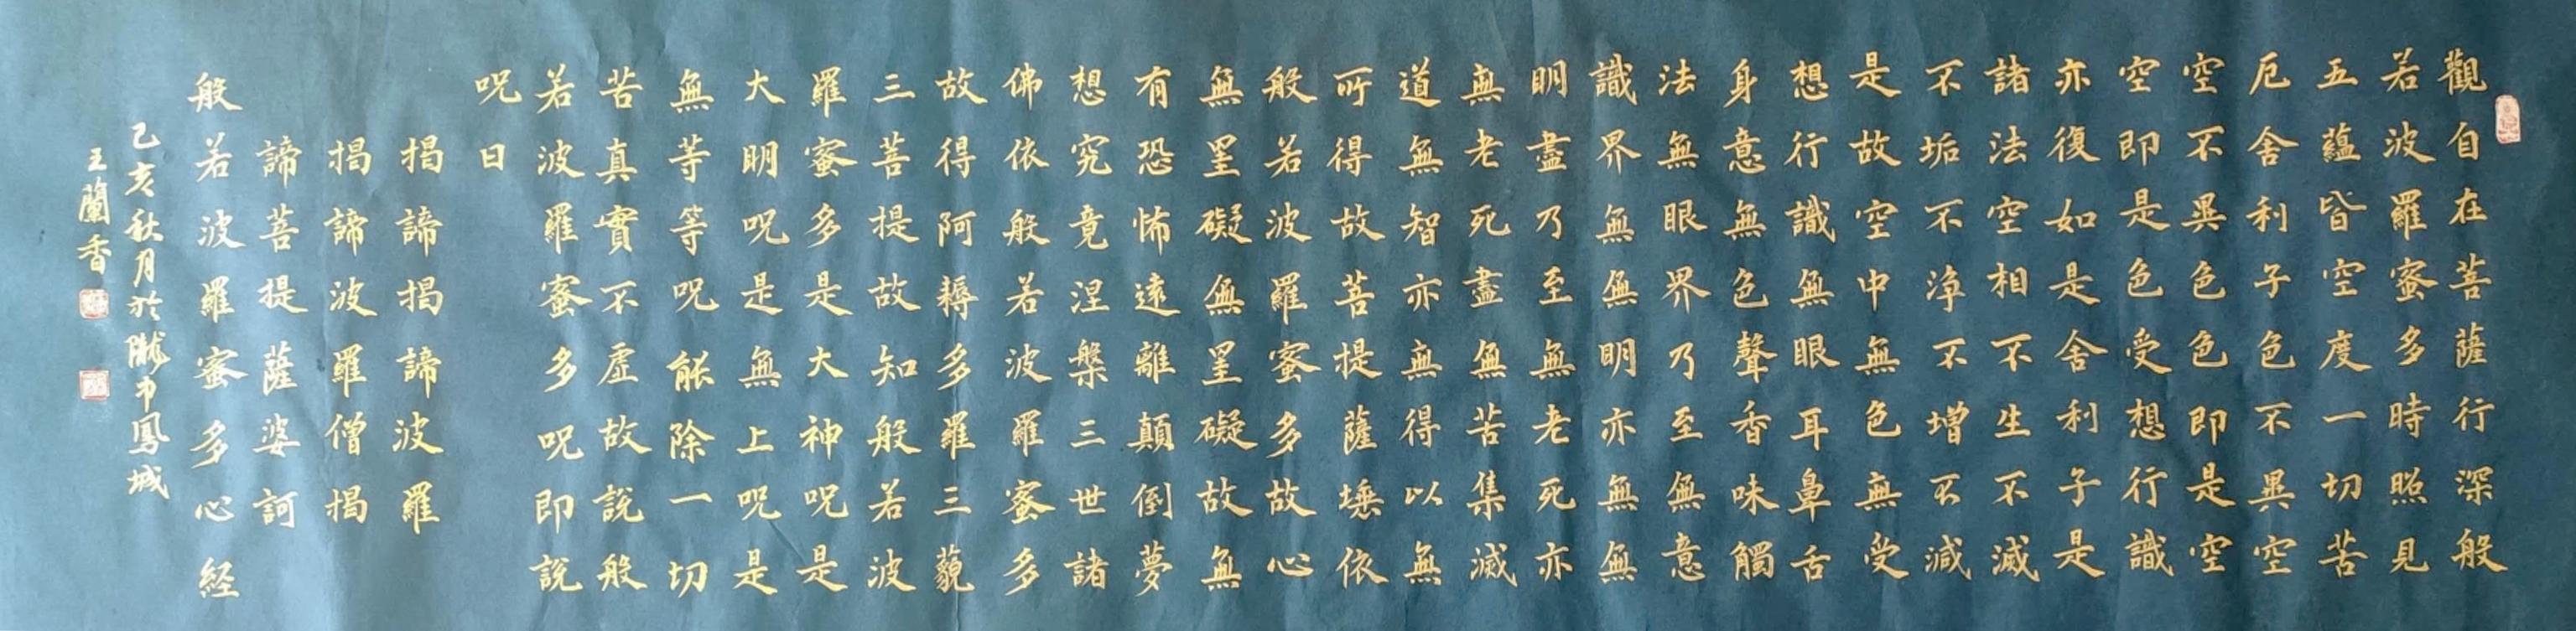 觀自在菩薩行深般
若波羅蜜多時照見
五蘊皆空度一切苦
厄舍利子色不異空
空不異色色即是空
空即是色受想行識
亦復如是舍利子是
諸法空相不生不滅
不垢不淨不增不減
是故空中無色無受
想行識無眼耳鼻舌
身意無色聲香味觸
法無眼界乃至無意
識界無無明亦無無
明盡乃至無老死亦
無老死盡無苦集滅
道無智亦無得以無
所得故菩提薩埵依
般若波羅蜜多故心
無罣礙無罣礙故無
有恐怖遠離顛倒夢
想究竟涅槃三世諸
佛依般若波羅蜜多
故得阿耨多羅三藐
三菩提故知般若波
羅蜜多是大神呪是
大明呪是無上呪是
無等等呪能除一切
苦真實不虛故說般
若波羅蜜多呪即說
呪曰
揭諦揭諦波羅
揭諦波羅僧揭
諦菩提薩婆訶
般若波羅蜜多心経
己亥秋月於隴中鳳城
王蘭香